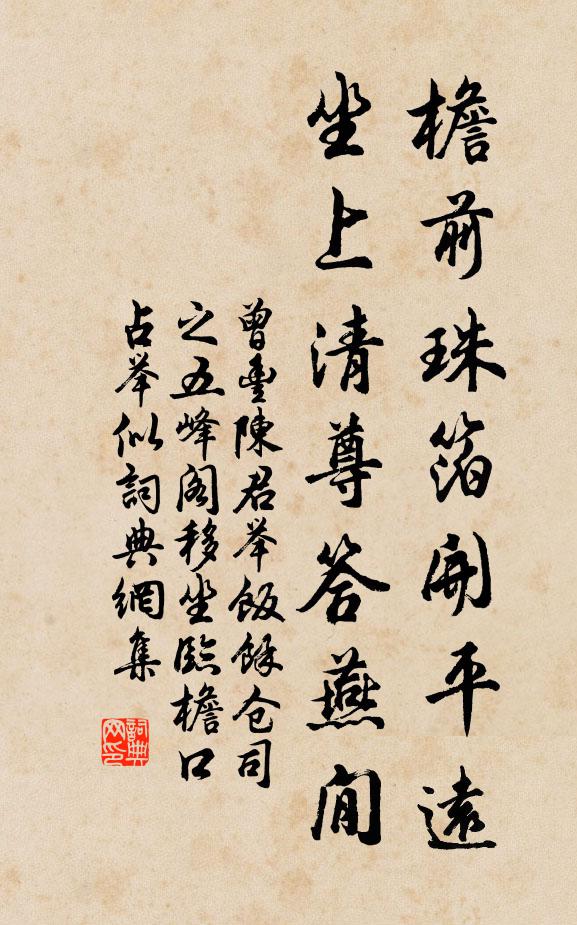 檐前珠箔開平遠
坐上清尊答燕閒
曾豐陳君举飯餘仓司
之五峰阁移坐臨檐口
占举似詞典網集
詞典网印